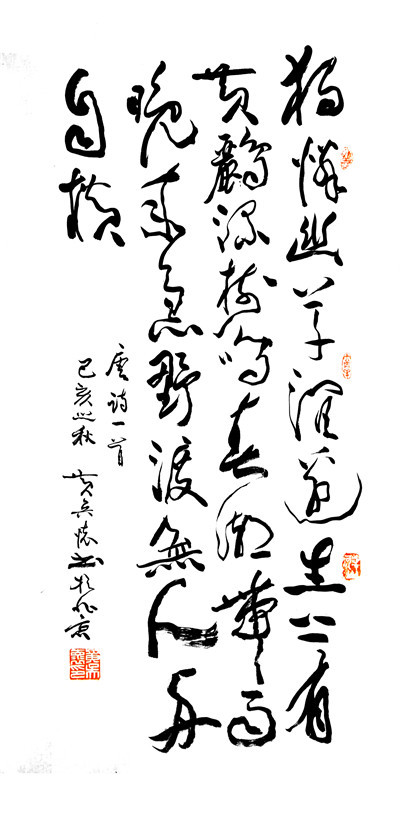 獨憐幽草澗邊生上有
黄鸝深樹鳴春潮帶雨
晚來急野渡無人舟
自横
唐詩一首
己亥之秋 黄兵懷书於北京